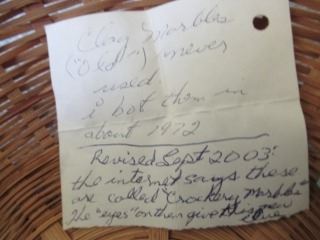 Clay Marbles
("Old") never
used
i bot them in
about 1972
Revised Sept 2003:
the internet says these
are called "Crockery Marbles"
The "eyes" on them give